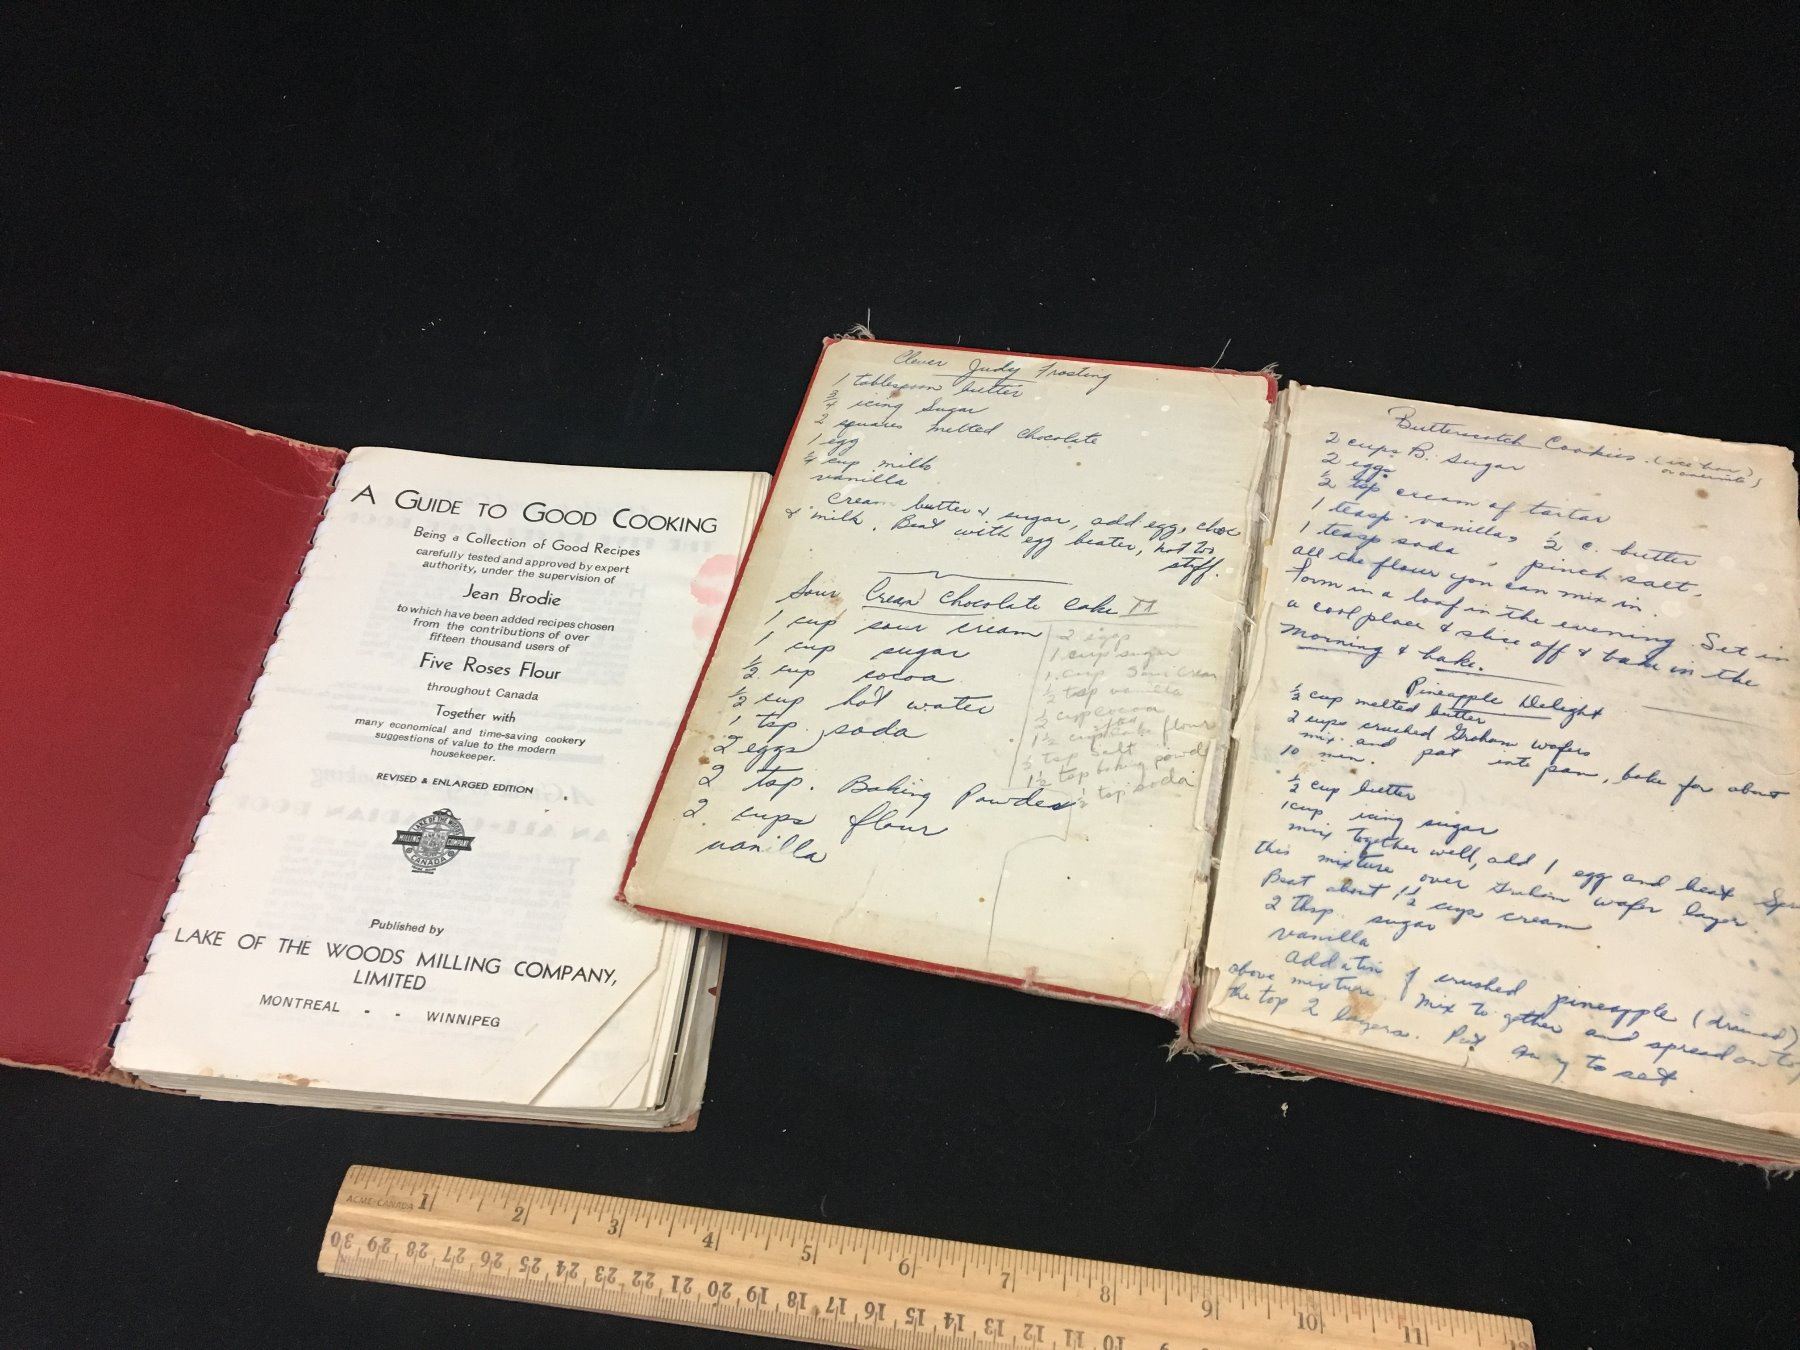 A GUIDE TO GOOD COOKING
Being a Collection of Good Recipes
carefully tested and approved by expert
authority, under the supervision of
Jean Brodie
to which have been added recipes chosen
from the contributions of over
fifteen thousand users of
Five Roses Flour
throughout Canada
Together with
many economical and time-saving cookery
suggestions of value to the modern
housekeeper.
REVISED & ENLARGED EDITION
LAKE OF THE WOODS
MILLING COMPANY
CANADA
Published by
LAKE OF THE WOODS MILLING COMPANY,
LIMITED
MONTREAL - - WINNIPEG
Clever Judy Frosting
1 tablespoon butter
3/4 icing Sugar
2 squares melted chocolate
1 egg
1/4 cup milk
vanilla
Cream butter & sugar, add egg, choc
& milk. Beat with egg beater, not too
stiff.
Sour Cream Chocolate Cake II
1 cup sour cream
1 cup sugar
1/2 cup cocoa
1/2 cup hot water
1 tsp. soda
2 eggs
2 tsp. Baking Powder
2 cups flour
vanilla
2 eggs
1 cup sugar
1 cup Sour Cream
1/2 tsp vanilla
1/2 cup cocoa
1 1/2 cups sifted cake flour
1/2 tsp salt
1 1/2 tsp baking powd
1/2 tsp soda
Butterscotch Cookies (ice box)
2 cups B. Sugar
2 eggs
1/2 tsp cream of tartar
1 teasp. vanilla, 1/2 c. butter
1 teasp soda, pinch salt,
all the flour you can mix in.
Form in a loaf in the evening. Set in
a cool place & slice off & bake in the
morning & bake.
Pineapple Delight
1/2 cup melted butter
2 cups crushed Graham wafers
mix and pat into pan, bake for about
10 min.
1/2 cup butter
1 cup icing sugar
mix together well, add 1 egg and beat Spre
this mixture over Graham wafer layer.
Beat about 1 1/2 cups cream
2 tbsp. sugar
vanilla
Add a tin of crushed pineapple (drained)
above mixture. Mix together and spread on to
the top 2 layers. Put away to set.
ACME-CANADA
1 2 3 4 5 6 7 8 9 10 11 12
30 29 28 27 26 25 24 23 22 21 20 19 18 17 16 15 14 13 12 11 10 9